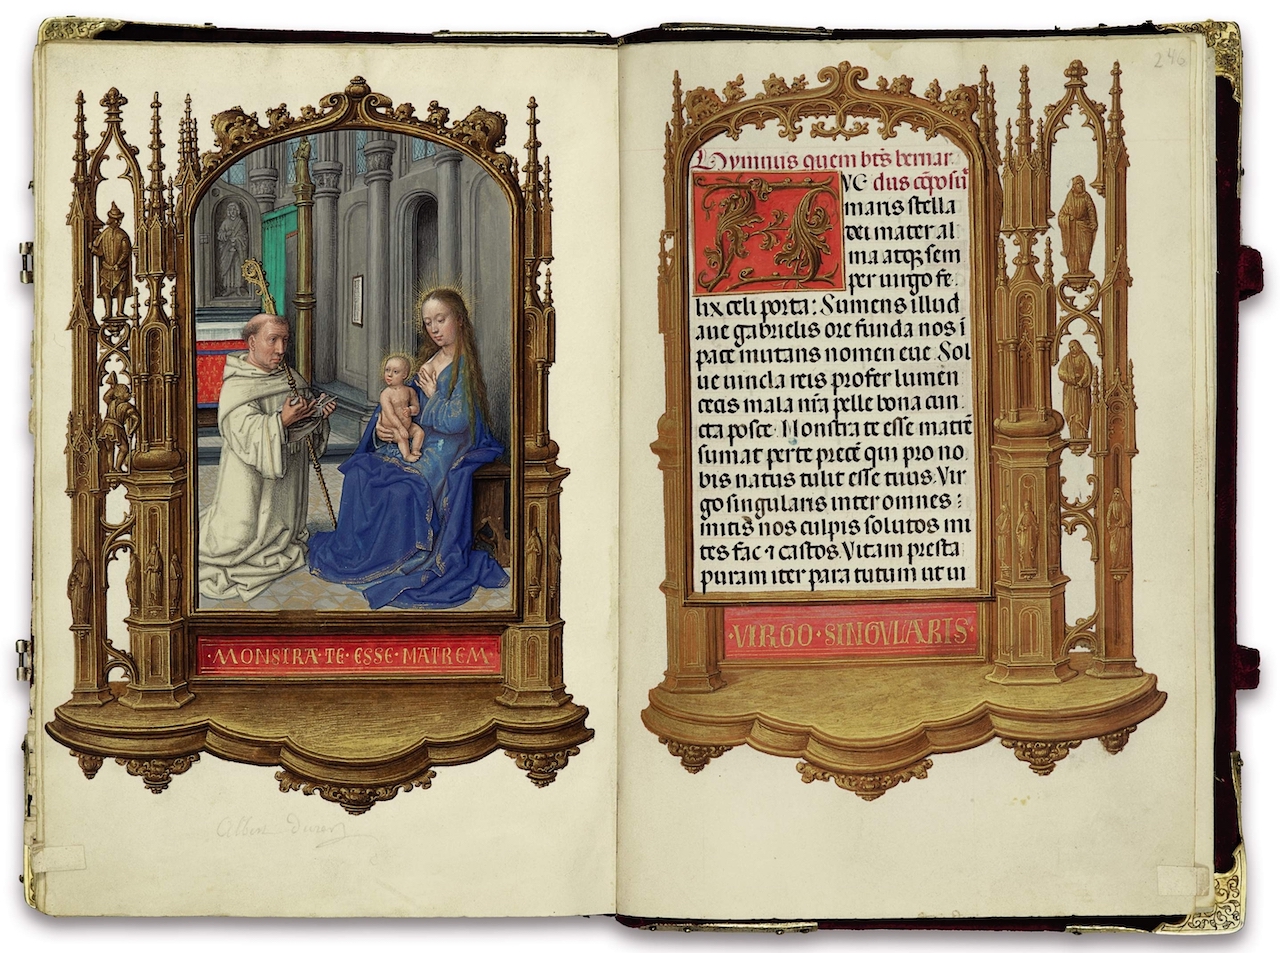 ·MONSTRA·TE·ESSE·MATREM·
Albert Durer
246
Hymnus quem bt̄s bernar
dus cōposu̅
AVE
maris stella
dei mater al
ma atqꝫ sem
per uirgo fe
lix celi porta: Sumens illud
aue gabrielis ore funda nos ī
pace mutans nomen eue. Sol
ue uincla reis profer lumen
cecis mala nr̄a pelle bona cun
cta posce. Monstra te esse matrē
sumat per te precē qui pro no
bis natus tulit esse tuus. Vir
go singularis inter omnes
mitis nos culpis solutos mi
tes fac ⁊ castos. Vitam presta
puram iter para tutum ut ui
·VIRGO·SINGVLARIS·